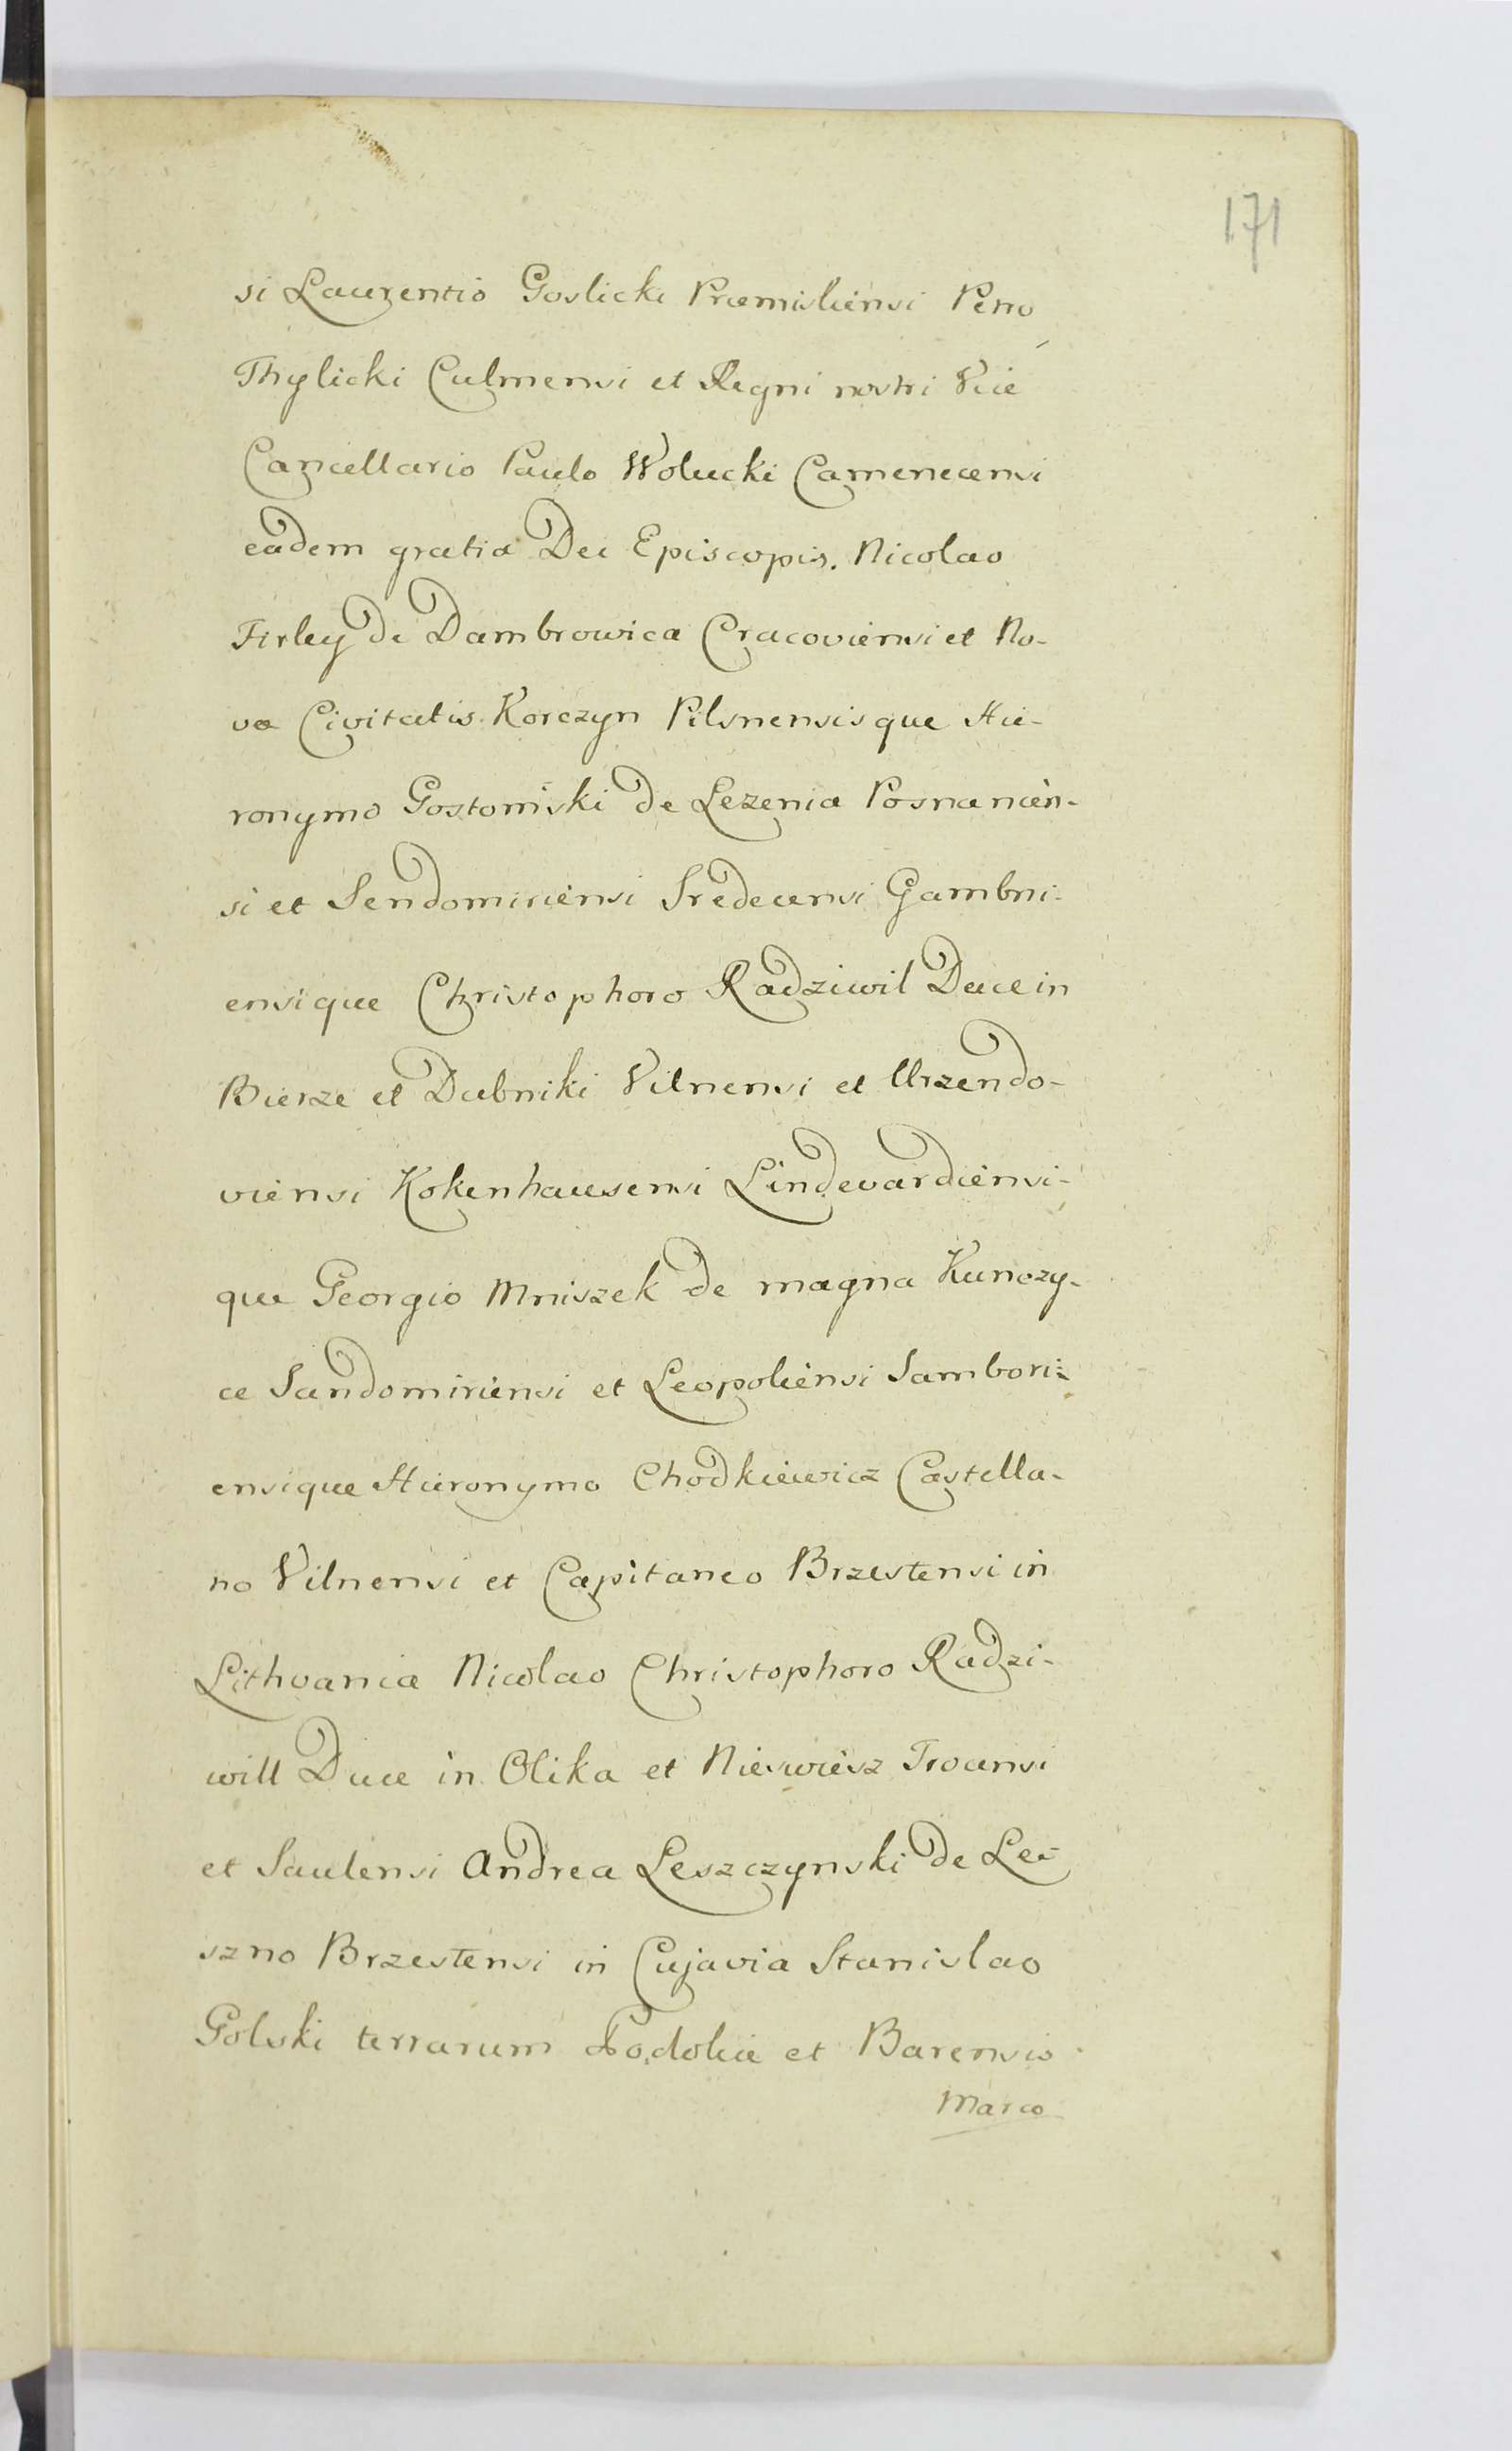 171
si Laurentio Goslicki Præmisliensi Petro
Thylicki Culmensi et Regni nostri Vice
Cancellario Paulo Wolucki Camenecensi
eadem gratia Dei Episcopis. Nicolao
Firley de Dambrowica Cracoviensi et No-
væ Civitatis Korczyn Pilsnensisque Hie-
ronymo Gostomski de Lezenia Posnanien-
si et Sendomiriensi Sredecensi Gambni-
ensique Christophoro Radziwil Duce in
Bierze et Dubniki Vilnensi et Urzendo-
viensi Kokenhausensi Lindevardiensi-
que Georgio Mniszek de magna Kunczy-
ce Sandomiriensi et Leopoliensi Sambori-
ensique Hieronymo Chodkiewicz Castella-
no Vilnensi et Capitaneo Brzestensi in
Lithvania Nicolao Christophoro Radzi-
will Duce in Olika et Nieswiesz Trocensi
et Saulensi Andrea Leszczynski de Le-
szno Brzestensi in Cujavia Stanislao
Golski terrarum Podolie et Barensis
Marco